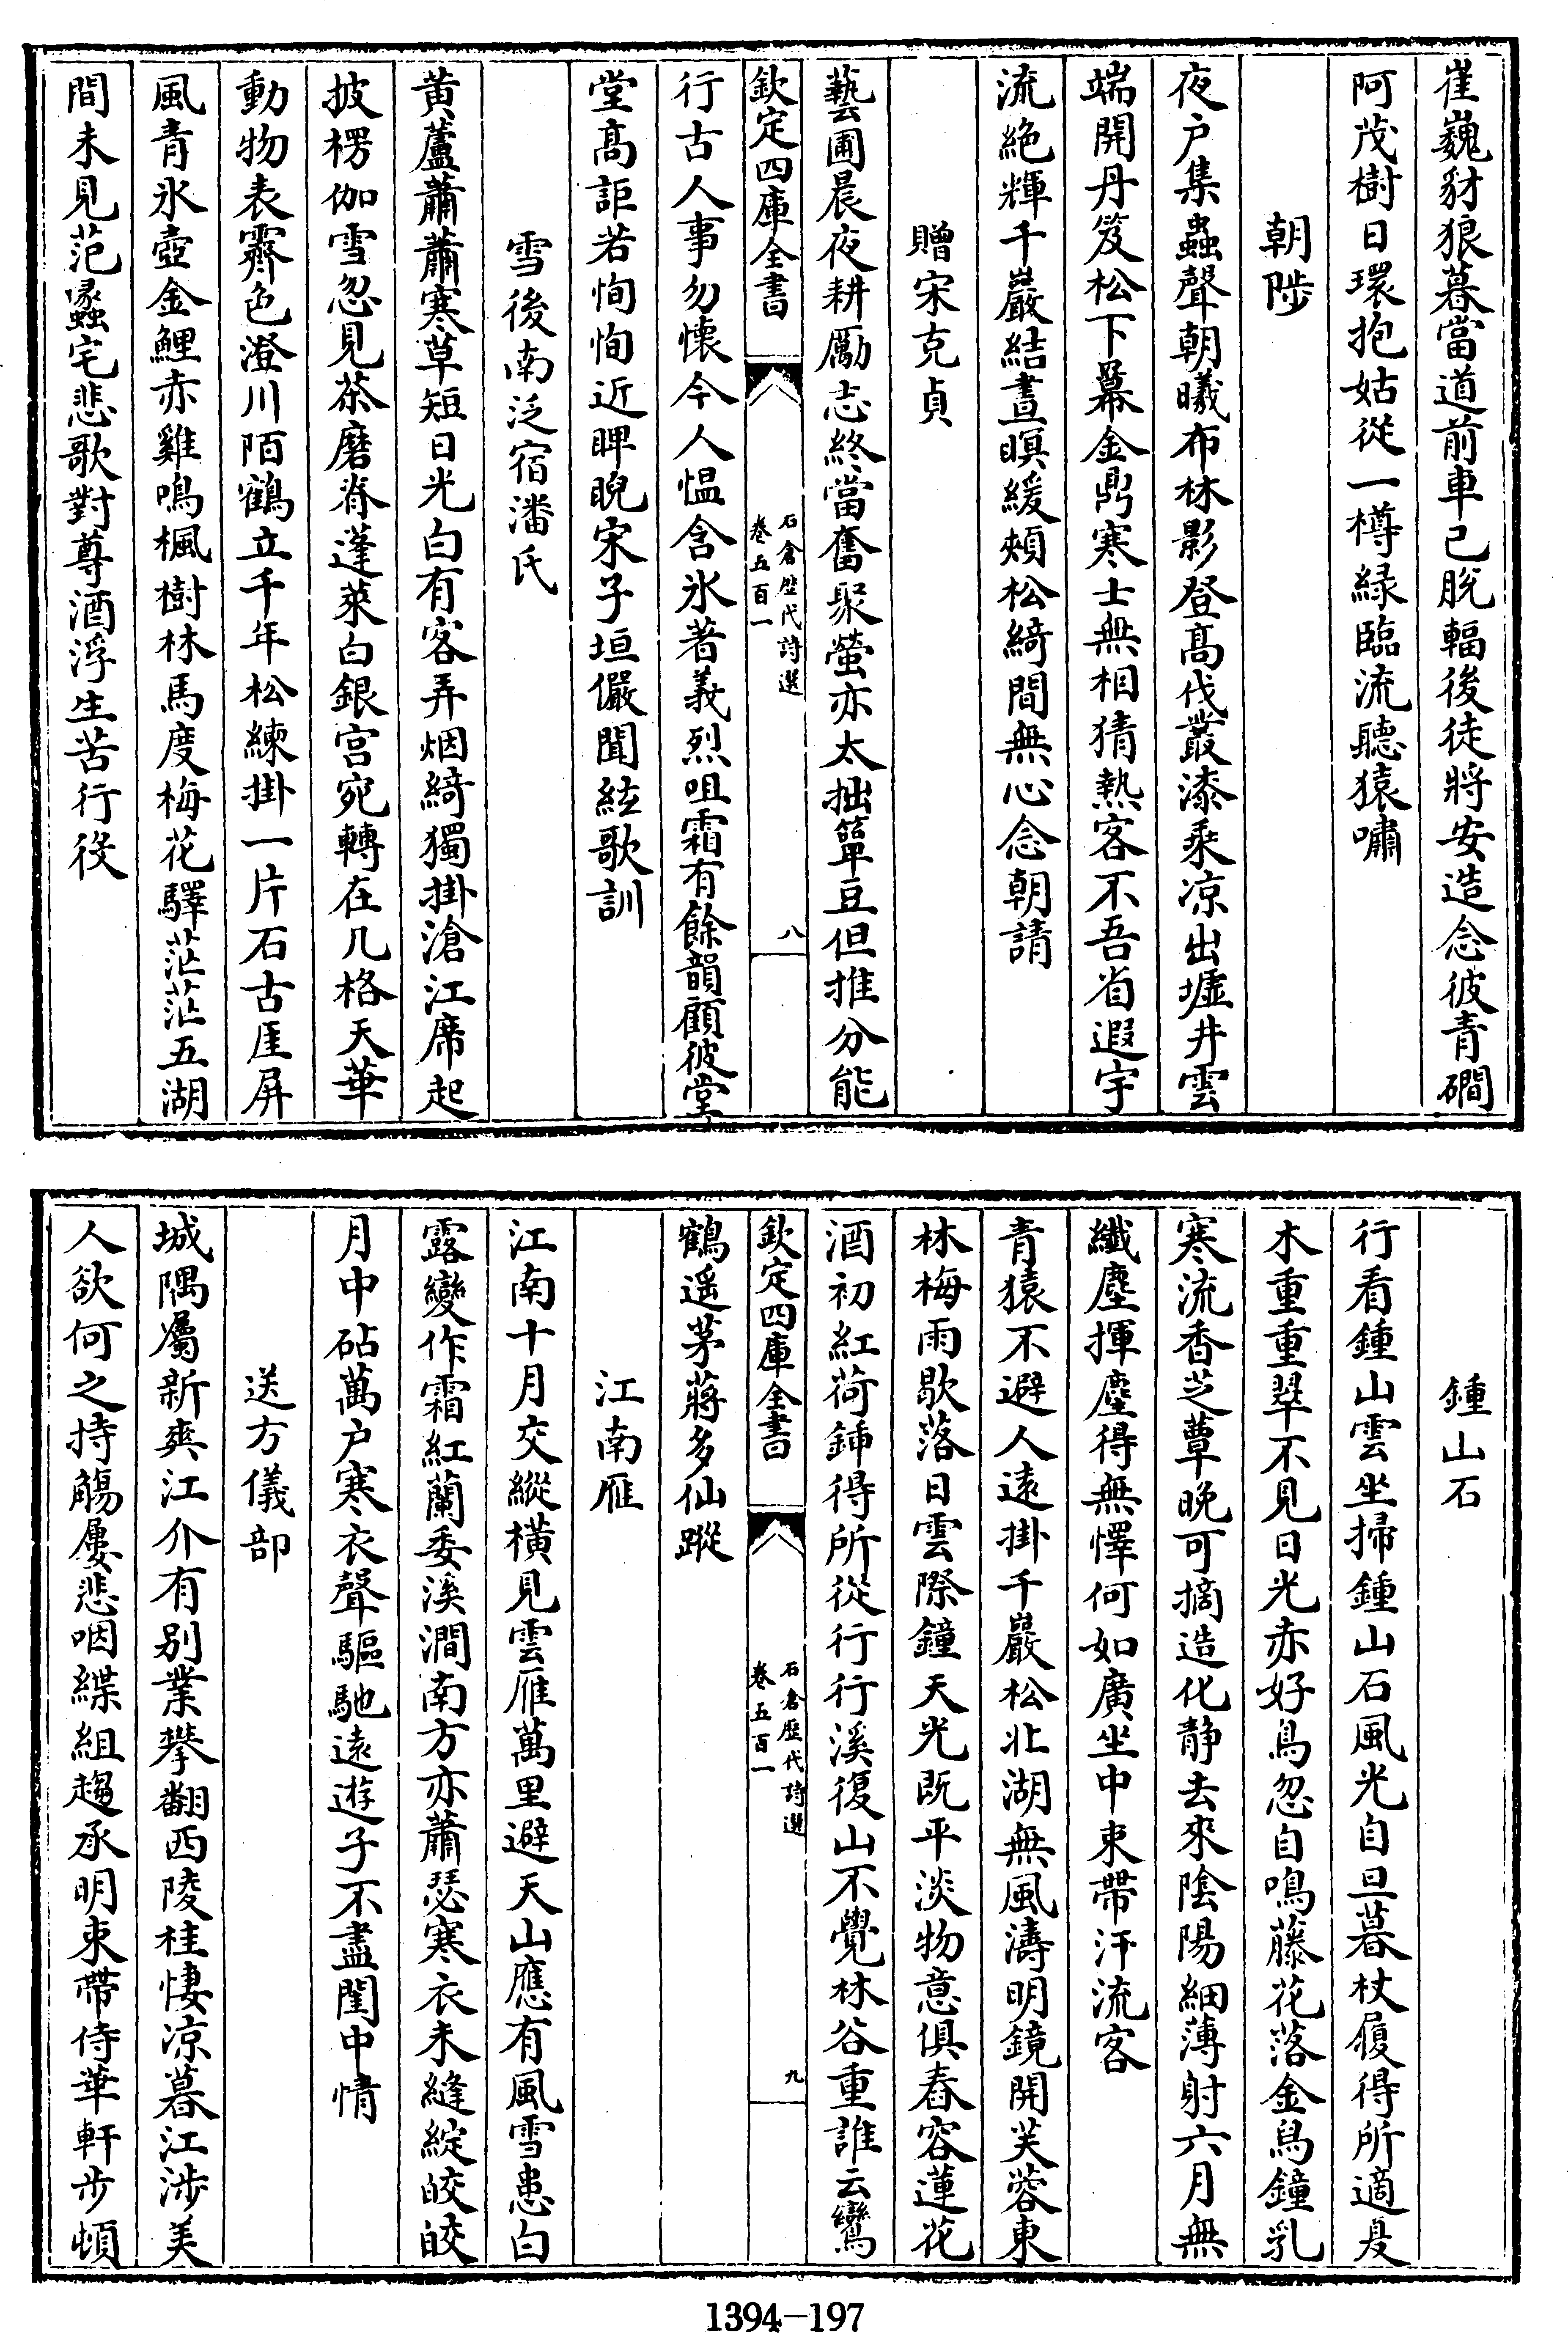 崔巍豺狼暮當道前車已脫輻後徒將安造念彼青磵
阿茂樹日環抱姑從一樽緑臨流聽猿嘯
朝陟
夜户集蟲聲朝曦布林影登髙伐叢漆乘凉出墟井雲
端開丹笈松下羃金鼎寒士無相猜熱客不吾省遐宇
流絶輝千巖結晝暝緩頰松綺間無心念朝請
贈宋克貞
藝圃晨夜耕勵志終當奮聚螢亦太拙簞豆但推分能
欽定四庫全書
石倉歴代詩選
卷五百一
八
行古人事勿懷今人愠含氷著義烈咀霜有餘韻顧彼堂
堂髙詎若恂恂近睥睨宋子垣儼聞絃歌訓
雪後南泛宿潘氏
黄蘆蕭蕭寒草短日光白有客弄烟綺獨掛滄江席起
披楞伽雪忽見茶磨脊蓬萊白銀宫宛轉在几格天華
動物表霽色澄川陌鶴立千年松練掛一片石古厓屏
風青氷壺金鯉赤雞鳴楓樹林馬度梅花驛茫茫五湖
間未見范蠡宅悲歌對尊酒浮生苦行役
鍾山石
行看鍾山雲坐掃鍾山石風光自旦暮杖履得所適是
木重重翠不見日光赤好鳥忽自鳴藤花落金舄鐘乳
寒流香芝蕈晚可摘造化静去來陰陽細薄射六月無
纖塵揮麈得無懌何如廣坐中束帶汗流客
青猿不避人遠掛千巖松北湖無風濤明鏡開芙蓉東
林梅雨歇落日雲際鐘天光既平淡物意俱舂容蓮花
酒初紅荷鍤得所從行行溪復山不覺林谷重誰云鸞
欽定四庫全書
石倉歴代詩選
卷五百一
九
鶴遥茅蔣多仙蹤
江南雁
江南十月交縱横見雲雁萬里避天山應有風雪患白
露變作霜紅蘭委溪澗南方亦蕭瑟寒衣未縫綻皎皎
月中砧萬户寒衣聲驅馳遠遊子不盡閨中情
送方儀部
城隅屬新爽江介有别業攀翻西陵桂悽凉暮江涉美
人欲何之持觴屢悲咽緤組趨承明束帶侍華軒步頓
1394-197